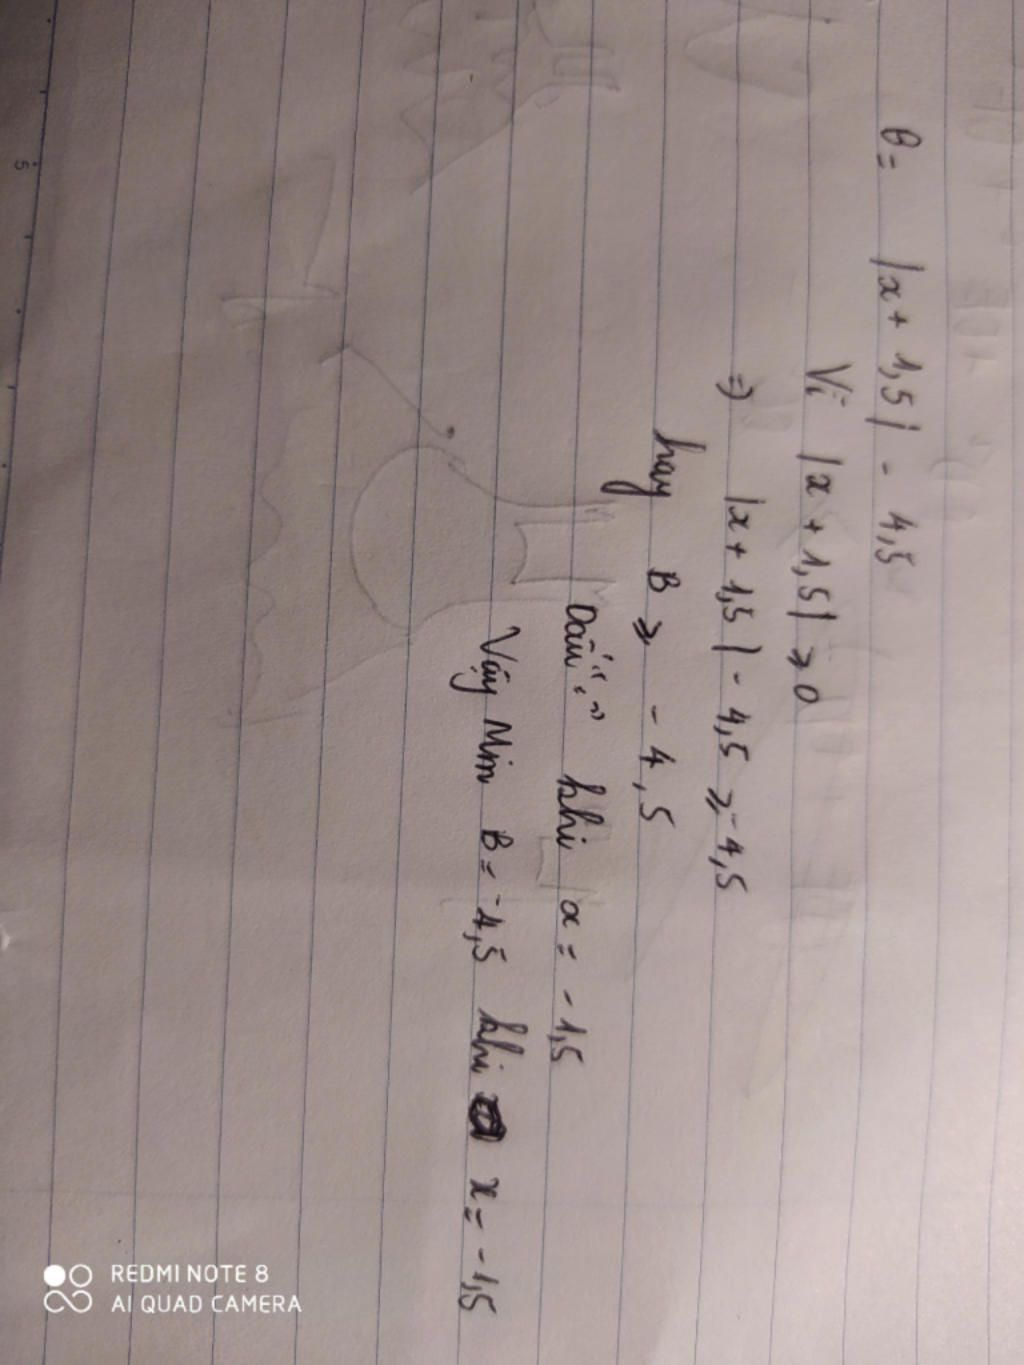 B = |x + 1,5| - 4,5
Vì |x + 1,5| ⩾ 0
=> |x + 1,5| - 4,5 ⩾ -4,5
hay B ⩾ -4,5
Dấu "=" khi x = -1,5
Vậy Min B = -4,5 khi x = -1,5
5
REDMI NOTE 8
AI QUAD CAMERA